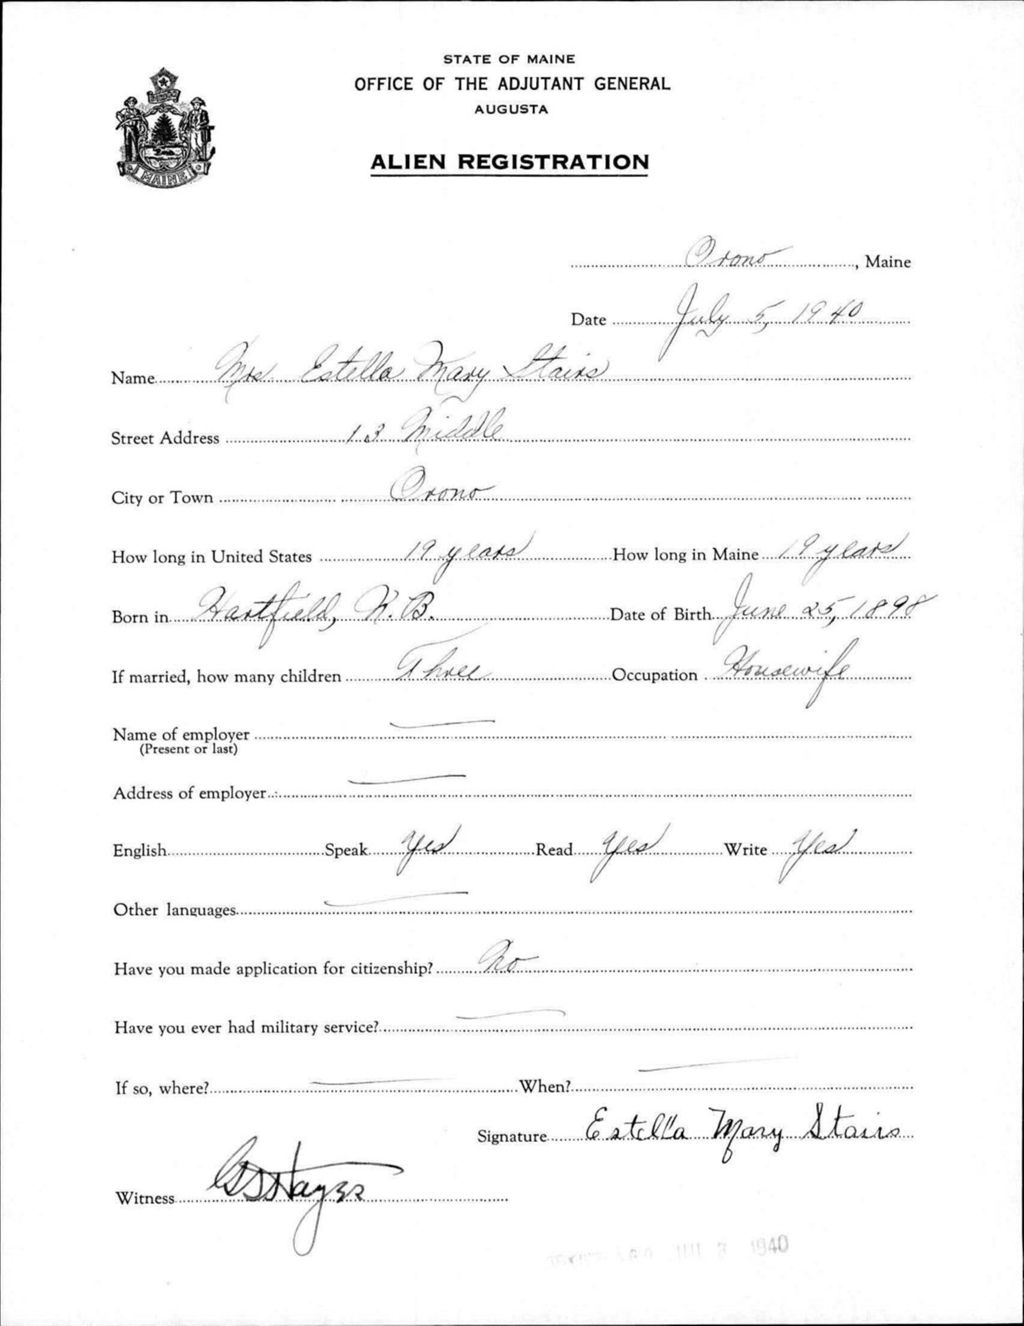 STATE OF MAINE
OFFICE OF THE ADJUTANT GENERAL
AUGUSTA
ALIEN REGISTRATION
MAINE
Orono, Maine
Date July 5, 1940
Name Mrs Estella Mary Stairs
Street Address 13 Middle
City or Town Orono
How long in United States 19 years How long in Maine 19 years
Born in Hartfield, N.B. Date of Birth June 25, 1898
If married, how many children Three Occupation Housewife
Name of employer
(Present or last)
Address of employer
English Speak Yes Read Yes Write Yes
Other languages
Have you made application for citizenship? No
Have you ever had military service?
If so, where? When?
Signature Estella Mary Stairs
Witness Hayes
1940